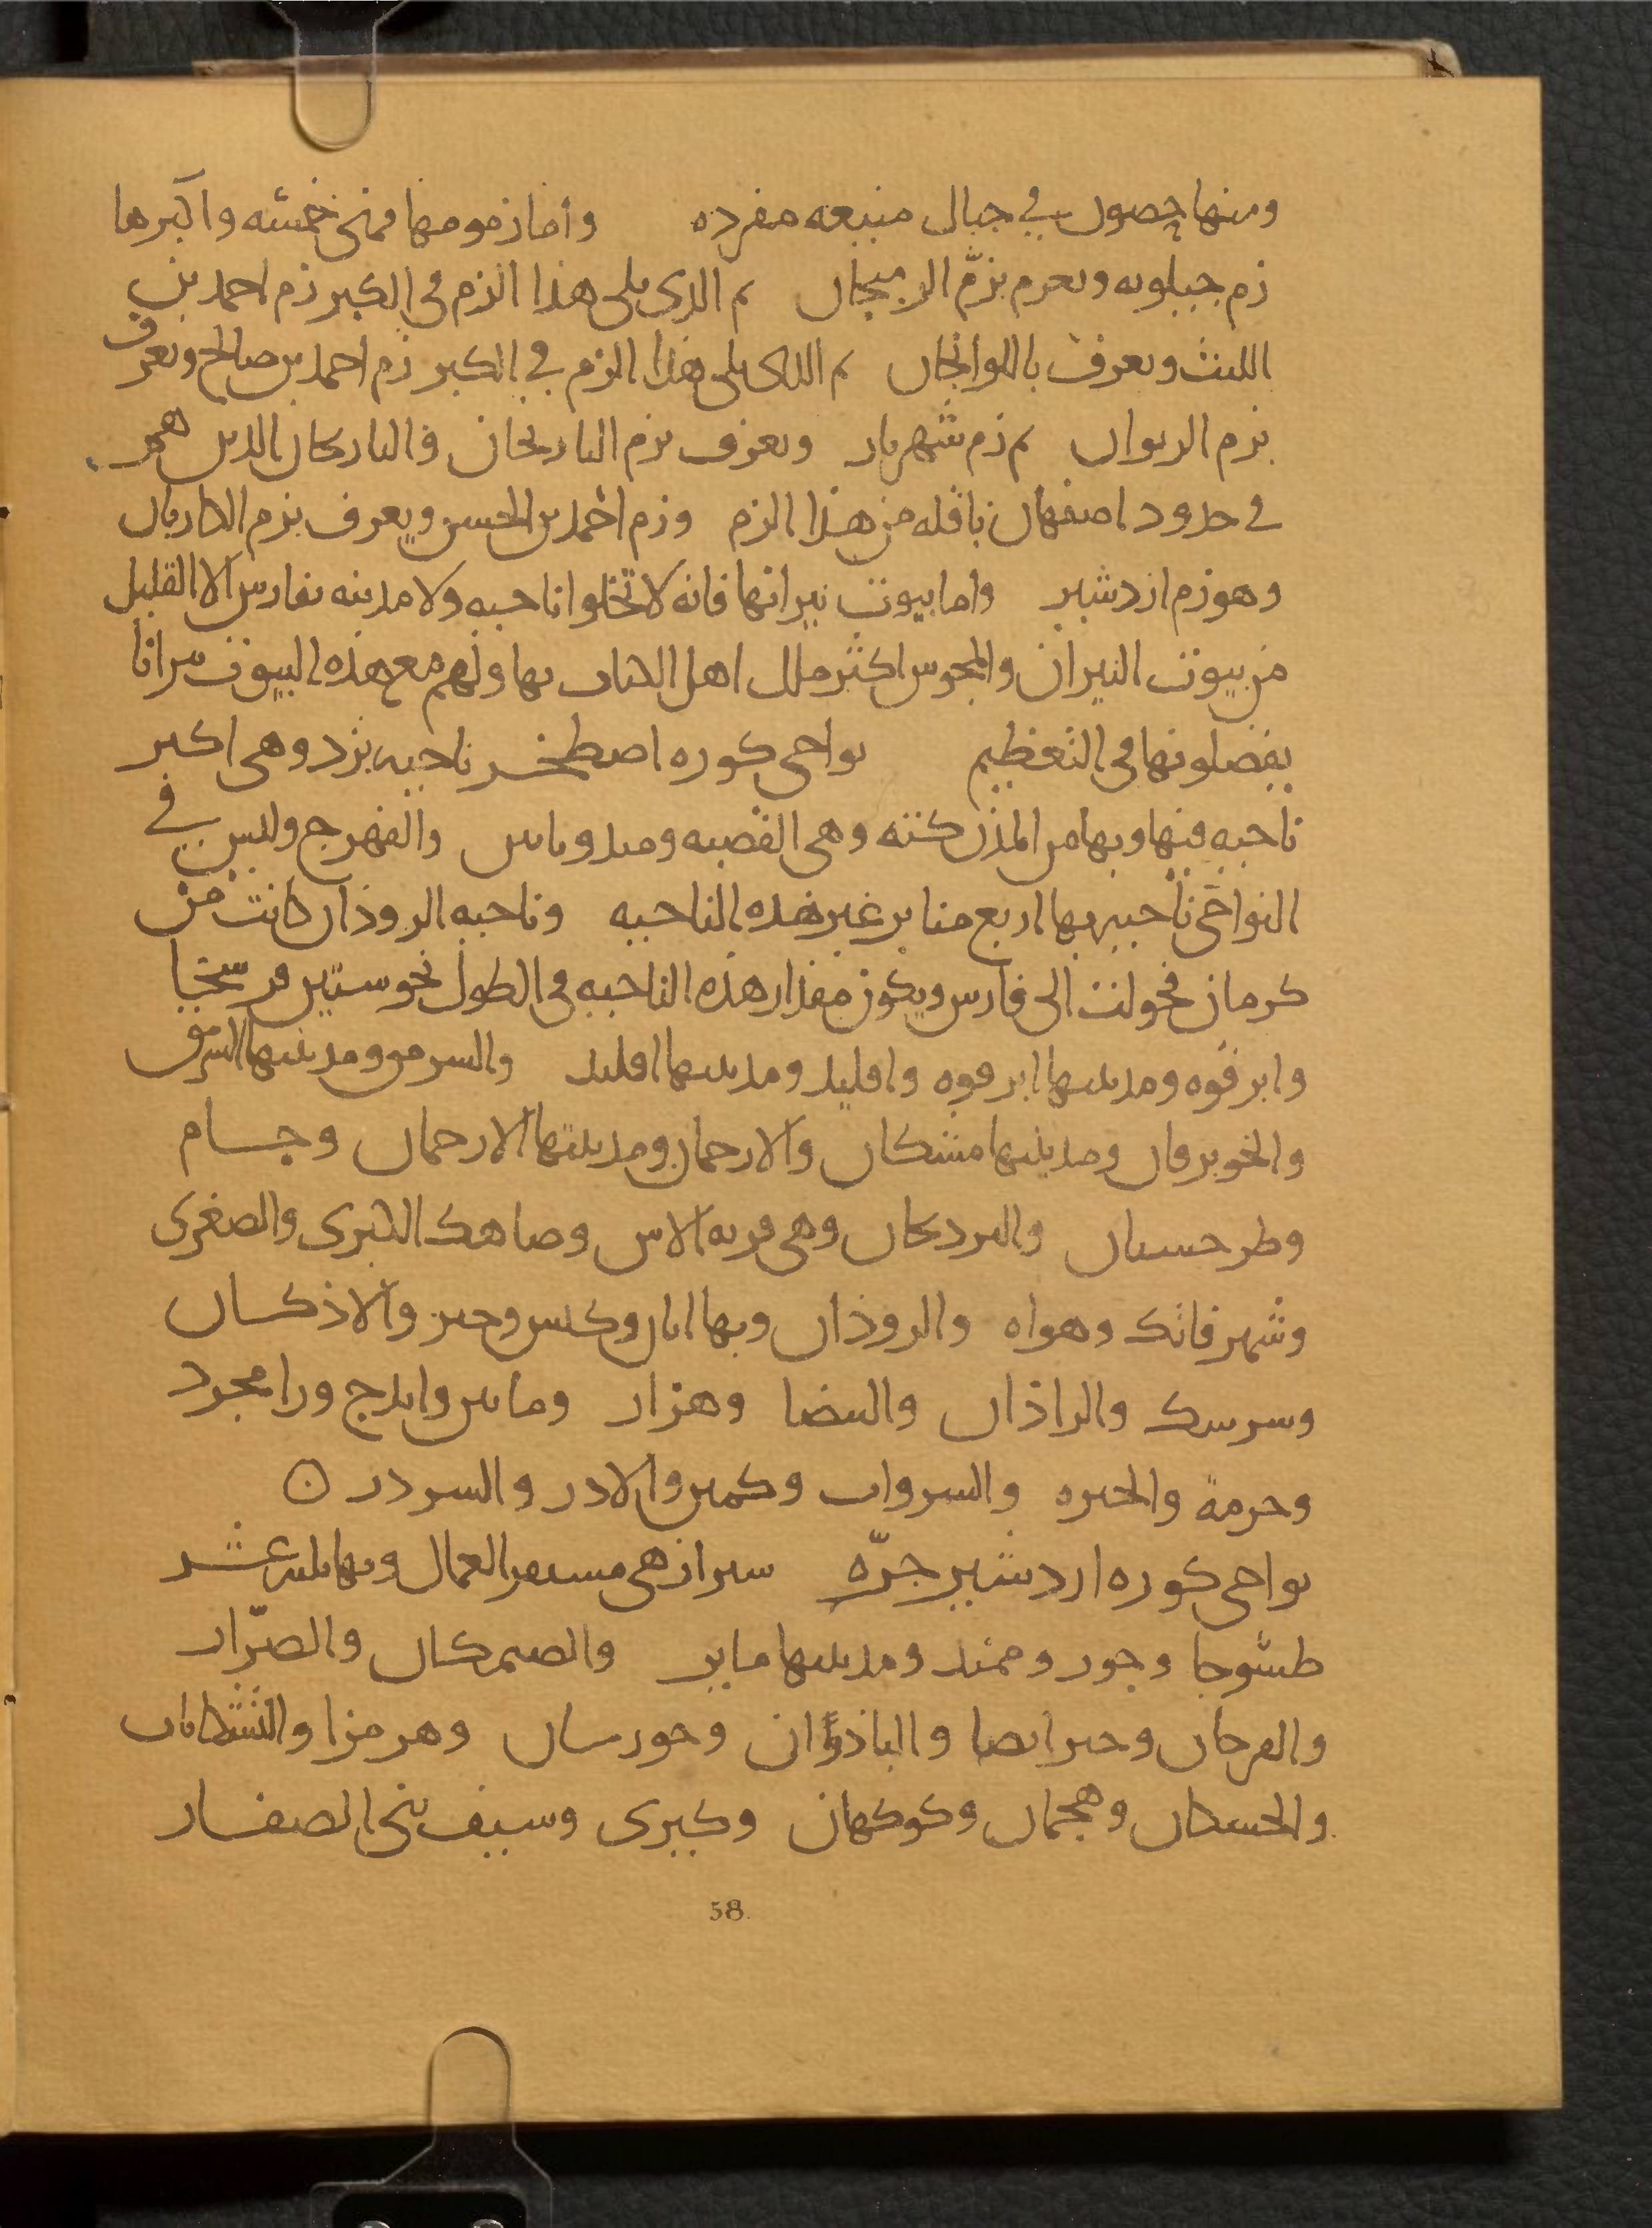 ومنها حصون في جبال منيعه مفرده وأما زمومها فهي خمسه واكبرها
زم جيلويه ويعرف بزمّ الرميجان ثم الذي يلي هذا الزم في الكبر زم احمد بن
الليث ويعرف باللوالجان ثم الذي يلي هذا الزم في الكبر زم احمد بن صالح ويعرف
بزم الديوان ثم زم شهريار ويعرف بزم البازنجان والبازنجان الذين هم
في حدود اصفهان ناقله من هذا الزم وزم احمد بن الحسن ويعرف بزم الكاريان
وهو زم ازدشير واما بيوت نيرانها فانه لا تخلوا ناحيه ولا مدينه بفارس الا القليل
من بيوت النيران والمجوس اكثر ملل اهل الكتاب بها ولهم مع هذه البيوت نيرانا
يفضلونها في التعظيم نواحي كوره اصطخر ناحيه يزد وهي اكبر
ناحيه فيها وبها من المدن كثه وهي القصبه وميبد ونايين والفهرج وليس في
النواحي ناحيه بها اربع منابر غير هذه الناحيه وناحيه الروذان كانت من
كرمان فحولت الى فارس ويكون مقدار هذه الناحيه في الطول نحو ستين فرسخا
وابرقوه ومدينتها ابرقوه واقليد ومدينتها اقليد والسرمق ومدينتها السرمق
والخوبرقان ومدينتها مشكان والارجمان ومدينتها الارجمان وجسام
وطرحسان والبردنجان وهي قريه الاس وصاهك الكبرى والصغرى
وشهرفاتك وهراه والروذان وبها ابان وكبس وخبر والاذكسان
وسرسك والراذان والبيضا وهزار ومايين وايدج ورامجرد
وحرمه والحيره والسروات وكمين والادر والسردن ن
نواحي كوره اردشير خرّه شيراز هي مستقر العمال وبها ثلثه عشر
طسّوجا وجور وميمند ومدينتها مابر والصيمكان والصرّار
والمرجان وحبر ايضا والباذوان وخورستان وهرمزا والتشكانات
والحسكان وهمجان وكوكهان وكبرى وسيف بني الصفار
58